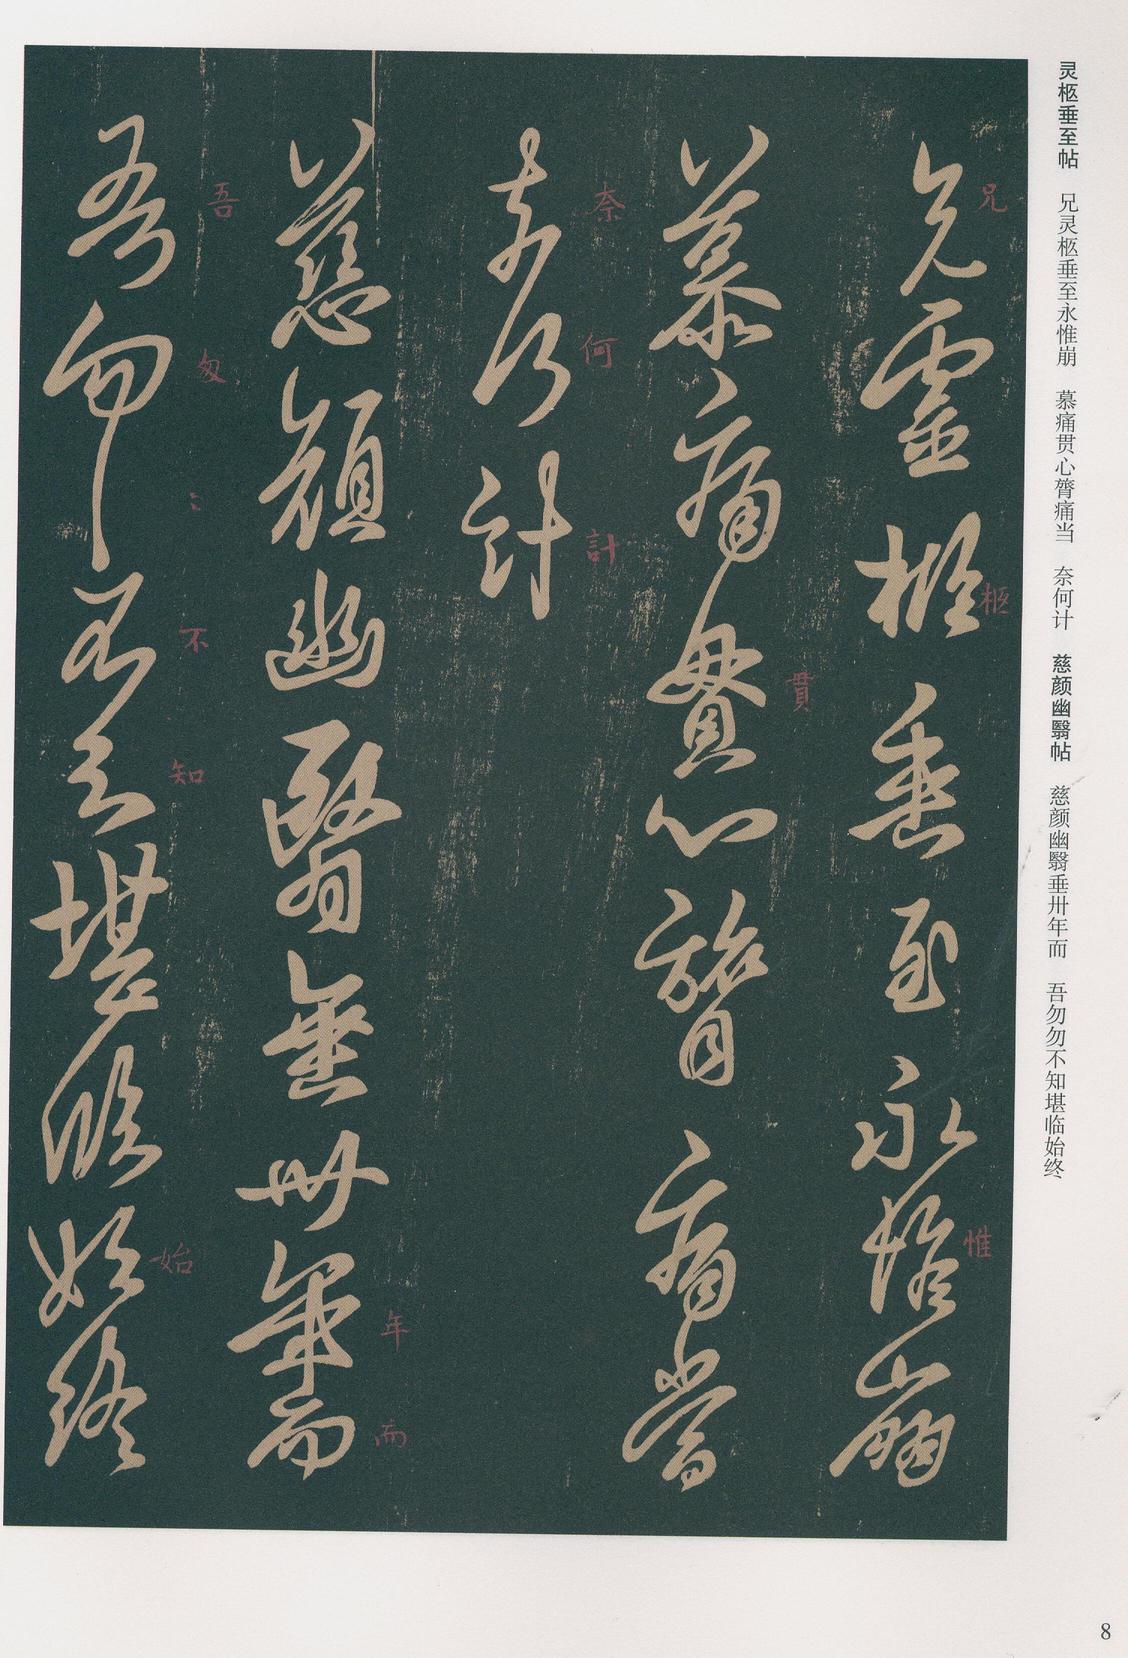 灵柩垂至帖 兄灵柩垂至永惟崩 慕痛贯心膂痛当 奈何计 慈颜幽翳帖 慈颜幽翳垂卅年而 吾勿勿不知堪临始终
兄靈柩垂至永惟崩
兄
柩
惟
慕痛貫心膂痛當
貫
奈何計
奈
何
計
慈顔幽翳垂卅年而
年
而
吾勿勿不知堪臨始終
吾
匆
〻
不
知
始
8